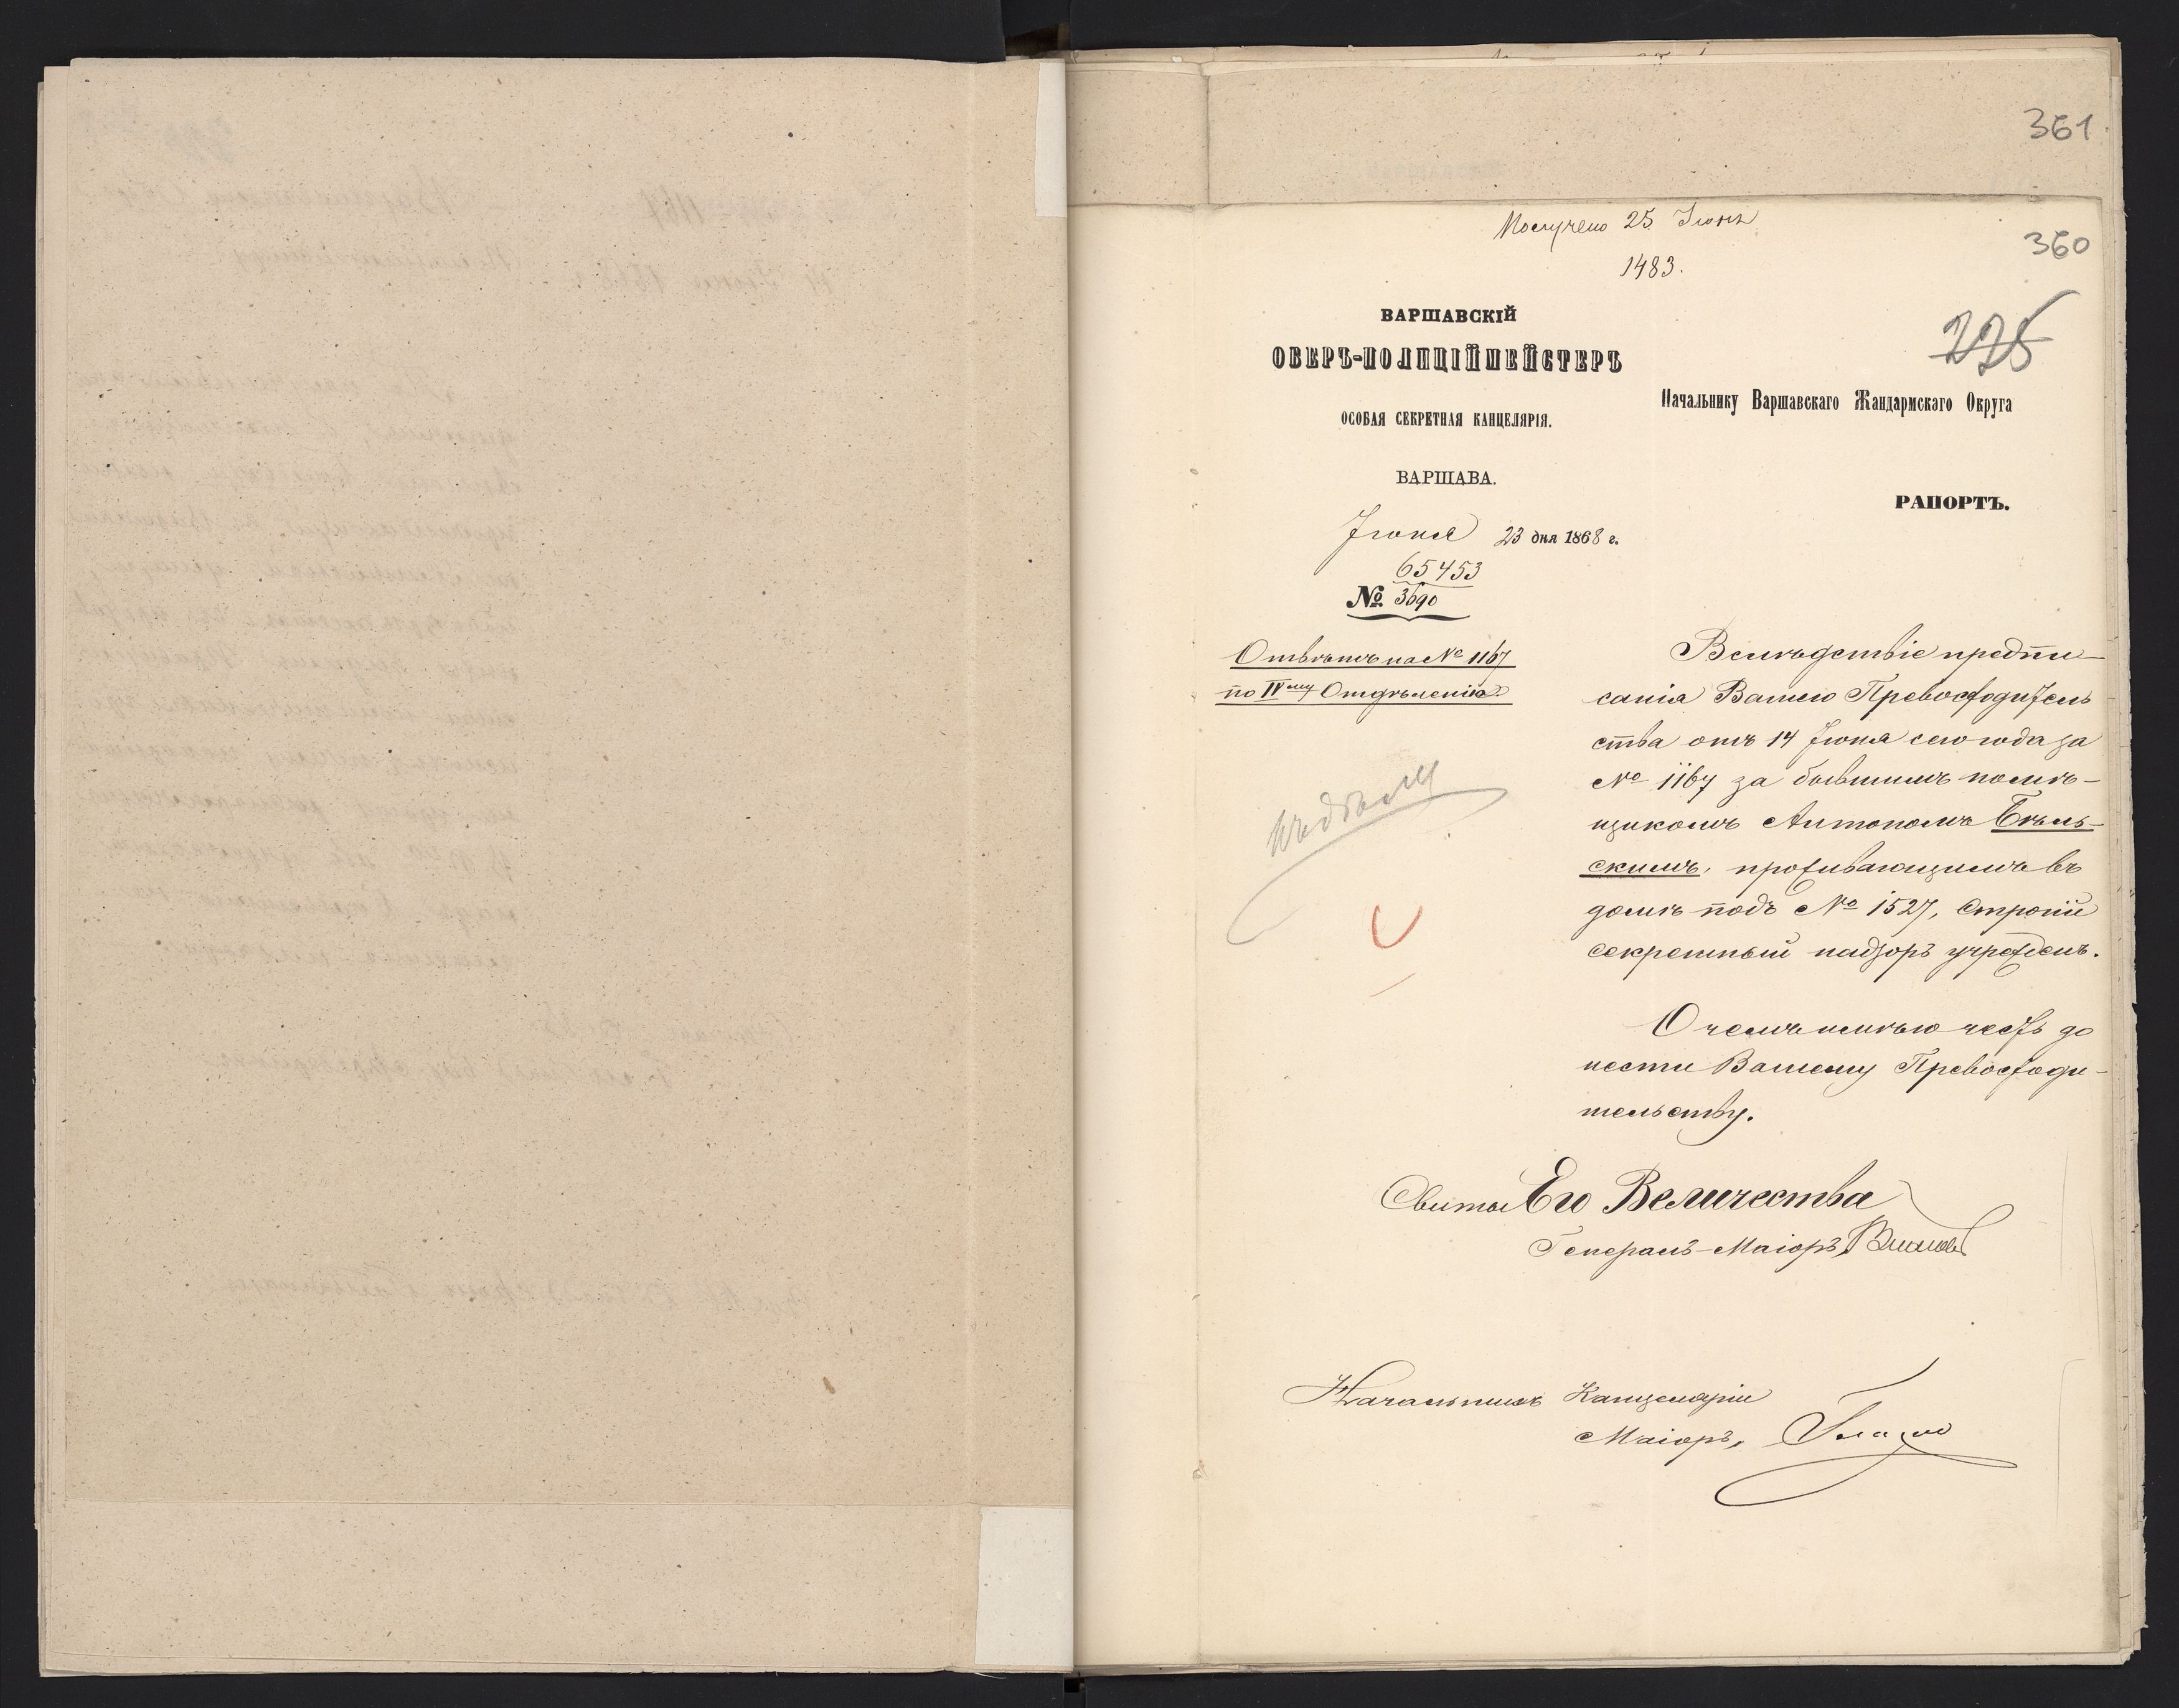 361
Получено 25 Іюня
1483.
360
225
ВАРШАВСКІЙ
ОБЕРЪ-ПОЛИЦІЙМЕЙСТЕРЪ
ОСОБАЯ СЕКРЕТНАЯ КАНЦЕЛЯРІЯ.
ВАРШАВА.
Іюня 23 дня 1868 г.
65453
№ 3690
Отвѣтъ на № 1167
по IVму Отдѣленію.
Къ дѣлу
Начальнику Варшавскаго Жандармскаго Округа
РАПОРТЪ.
Вслѣдствіе предпи-
санія Вашего Превосходитель
ства отъ 14 Іюня сего года за
№ 1167 за бывшимъ помѣ-
щикомъ Антономъ Бѣль-
скимъ, проживающимъ въ
домѣ подъ № 1527, строгій
секретный надзоръ учрежденъ.
О чемъ имѣю честь до
нести Вашему Превосходи-
тельству.
Свиты Его Величества
Генералъ-Маіоръ, Власовъ
Начальникъ Канцеляріи
Маіоръ,